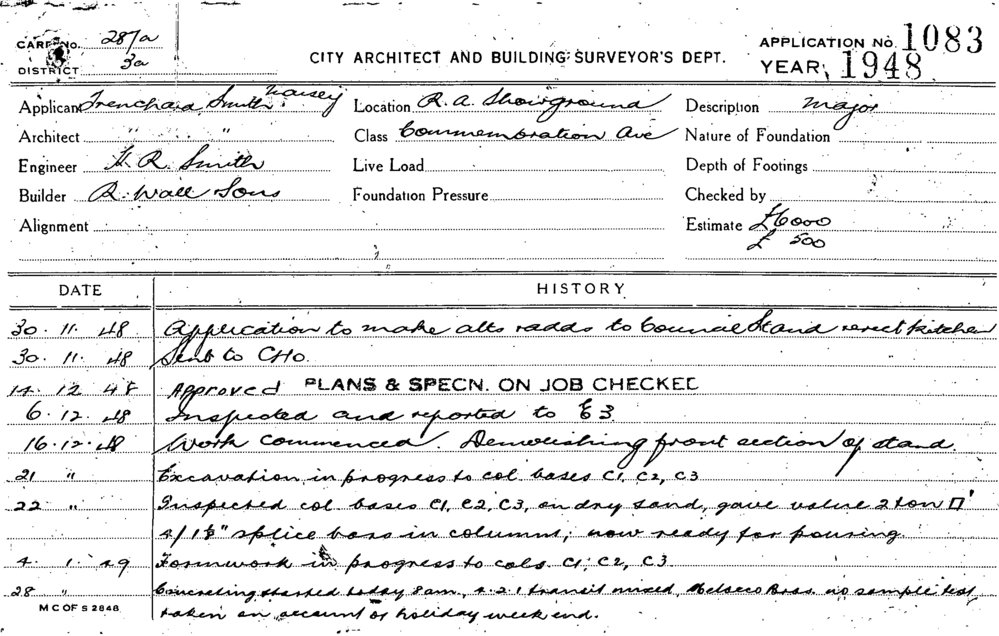 CARD No. 287a
DISTRICT 3a
CITY ARCHITECT AND BUILDING SURVEYOR'S DEPT.
APPLICATION No. 1083
YEAR 1948
Applicant Trenchard Smith Maisey Location R. A. Showground Description major
Architect " " " Class Commemoration Ave Nature of Foundation
Engineer H. R. Smith Live Load Depth of Footings
Builder R. Wall Sons Foundation Pressure Checked by
Alignment Estimate £6000
£ 500
DATE HISTORY
30. 11. 48 Application to make alts & adds to Council Stand & erect kitchen
30. 11. 48 Sent to CHO.
14. 12 48 Approved PLANS & SPECN. ON JOB CHECKED
6. 12. 48 Inspected and reported to E3
16. 12. 48 Work commenced. Demolishing front section of stand.
21 " Excavation in progress to col. bases C1, C2, C3
22 " Inspected col. bases C1, C2, C3, on dry sand, gave value 2 ton □'
4/1⅛" splice bars in columns; now ready for pouring.
4. 1. 49 Formwork in progress to cols. C1, C2, C3.
28 " Concreting started today 8 am., 4.2.1 transit mixed, Bros. no sample test
M C OF S 2848
taken on account of holiday weekend.